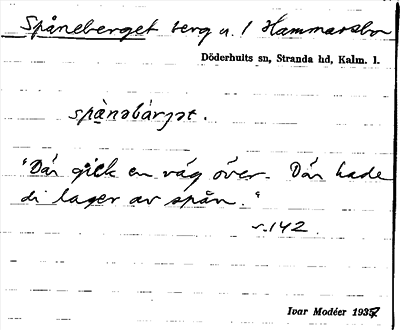 Spåneberget berg a. 1 Hammarsbo
Döderhults sn, Stranda hd, Kalm. l.
spå̀nəbàrjət.
"Då'r gick en väg över. Då'r hade
di lager av spån."
s.142
Ivar Modéer 1937